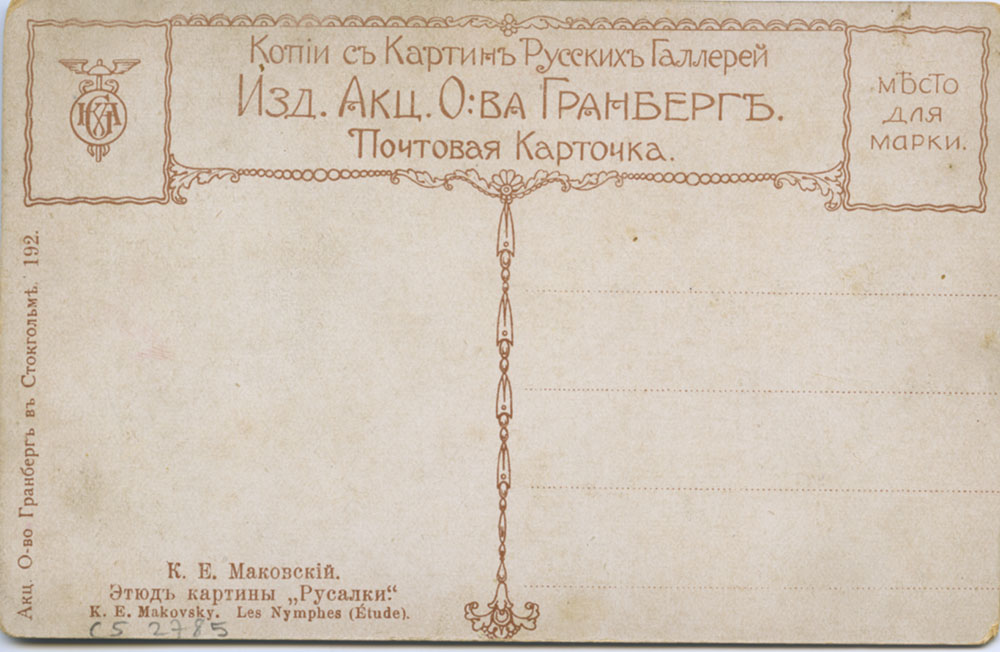 Копіи съ Картинъ Русскихъ Галлерей
Изд. Акц. О:ва Гранбергъ.
Почтовая Карточка.
Мѣсто
для
марки.
Акц. О-во Гранбергъ въ Стокгольмѣ. 192.
К. Е. Маковскій.
Этюдъ картины „Русалки“.
K. E. Makovsky. Les Nymphes (Étude).
C5 2785